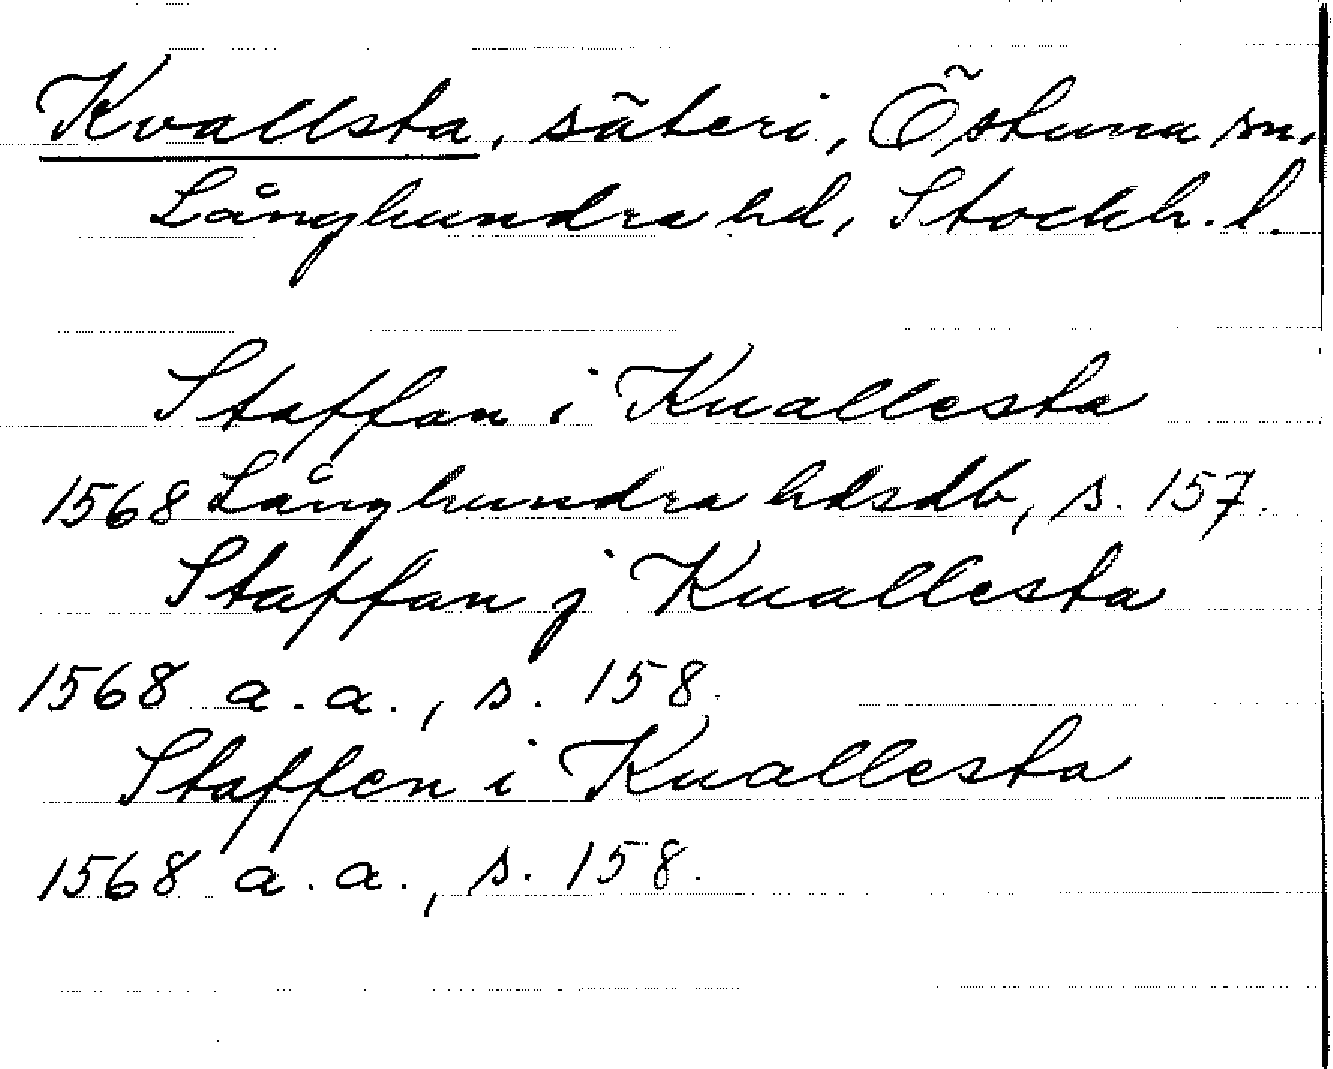 Kvallsta, säteri, Östuna sn,
Långhundra hd, Stockh. l.
Staffan i Kuallesta
1568 Långhundra hdsdb, s. 157.
Staffan j Kuallesta
1568 a. a., s. 158.
Staffen i Kuallesta
1568 a. a., s. 158.